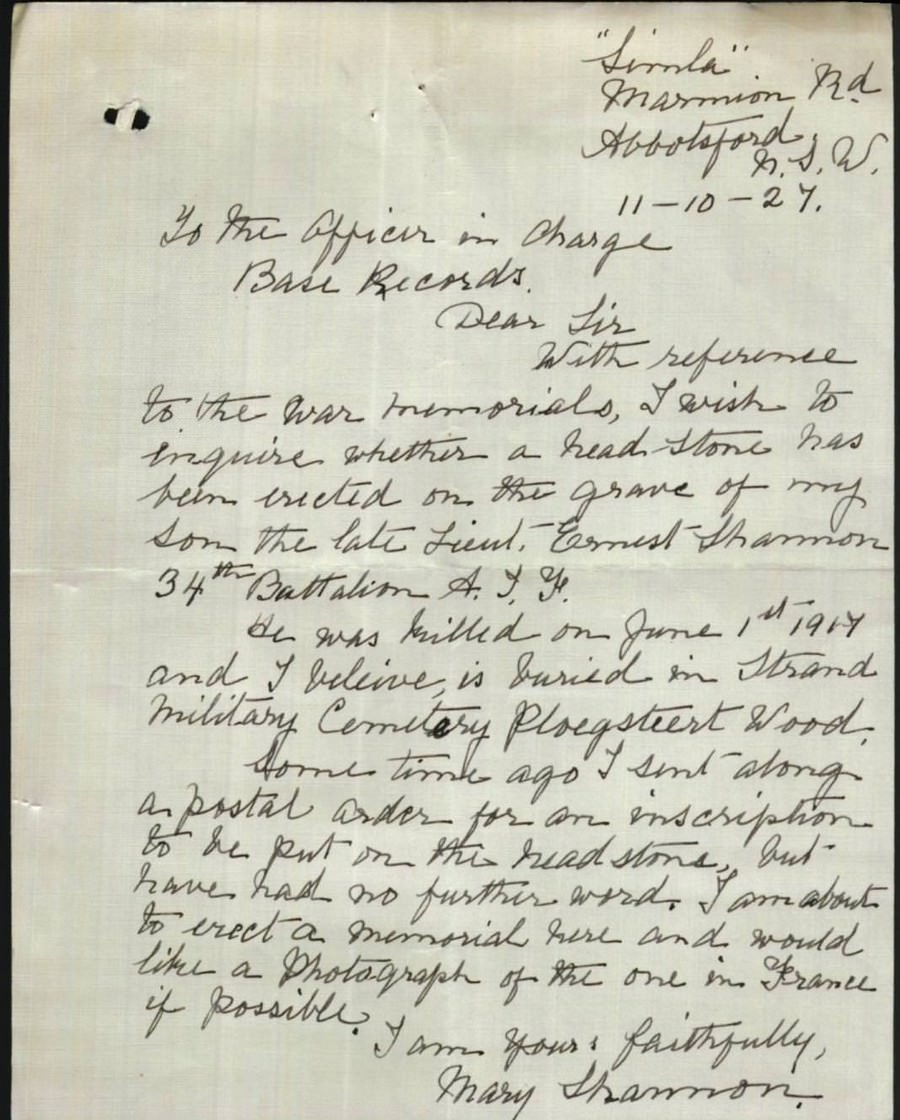 "Simla"
Marmion Rd
Abbotsford,
N.S.W.
11-10-27.
To the Officer in Charge
Base Records.
Dear Sir
With reference
to the War memorials, I wish to
enquire whether a head-stone has
been erected on the grave of my
son the late Lieut. Ernest Shannon
34th Battalion A.I.F.
He was killed on June 1st 1917
and I beleive, is buried in Strand
Military Cemetery Ploegsteert Wood.
Some time ago I sent along
a postal order for an inscription
to be put on the headstone, but
have had no further word. I am about
to erect a memorial here and would
like a Photograph of the one in France
if possible.
I am yours faithfully,
Mary Shannon.